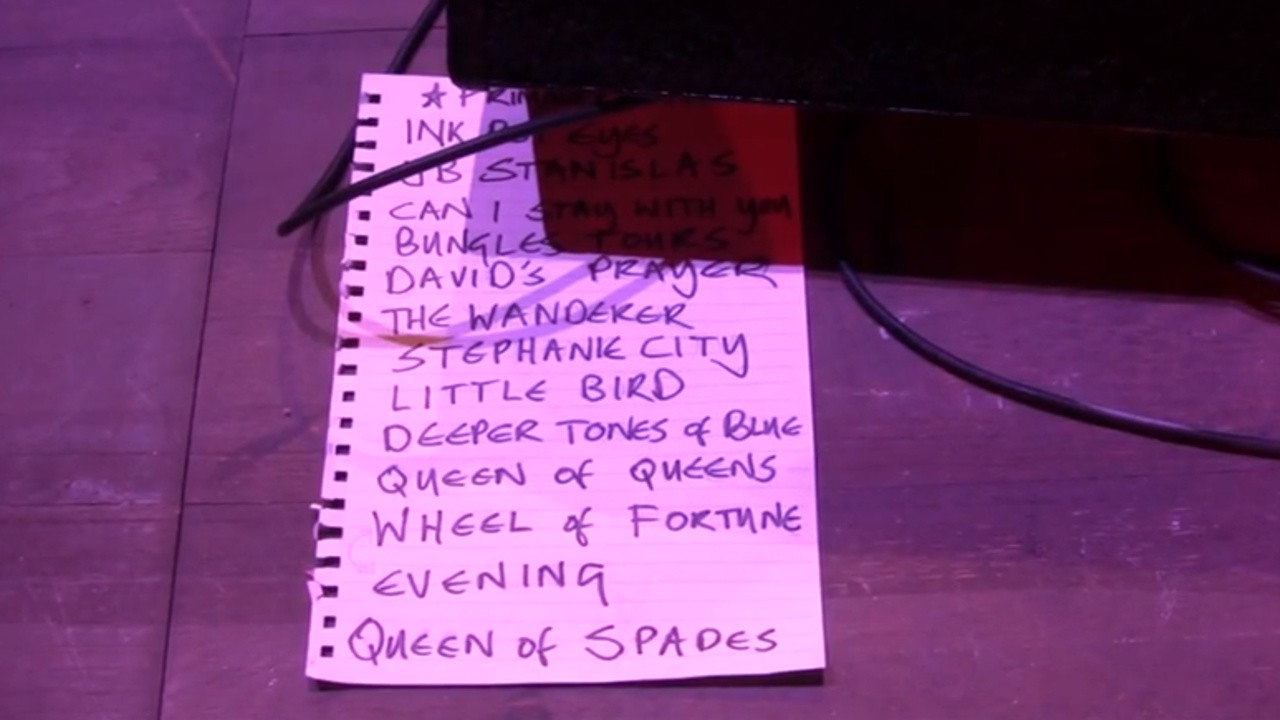 INK POT EYES
JB STANISLAS
CAN I STAY WITH YOU
BUNGLES TOURS
DAVID'S PRAYER
THE WANDERER
STEPHANIE CITY
LITTLE BIRD
DEEPER TONES of BLUE
QUEEN of QUEENS
WHEEL of FORTUNE
EVENING
QUEEN of SPADES